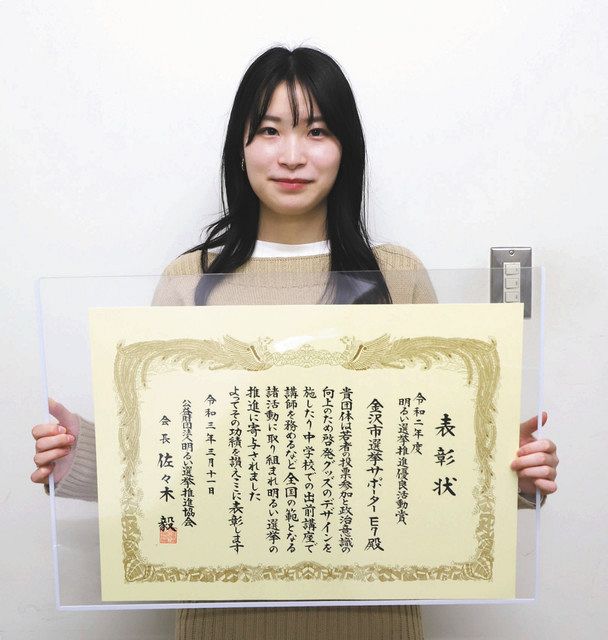 表彰状
令和二年度
明るい選挙推進優良活動賞
金沢市選挙サポーターE7殿
貴団体は若者の投票参加と政治意識の
向上のため啓発グッズのデザインを
施したり中学校での出前講座で
講師を務めるなど全国の範となる
諸活動に取り組まれ明るい選挙の
推進に寄与されました
よってその功績を讃えここに表彰します
令和三年三月十一日
公益財団法人明るい選挙推進協会
会長 佐々木 毅